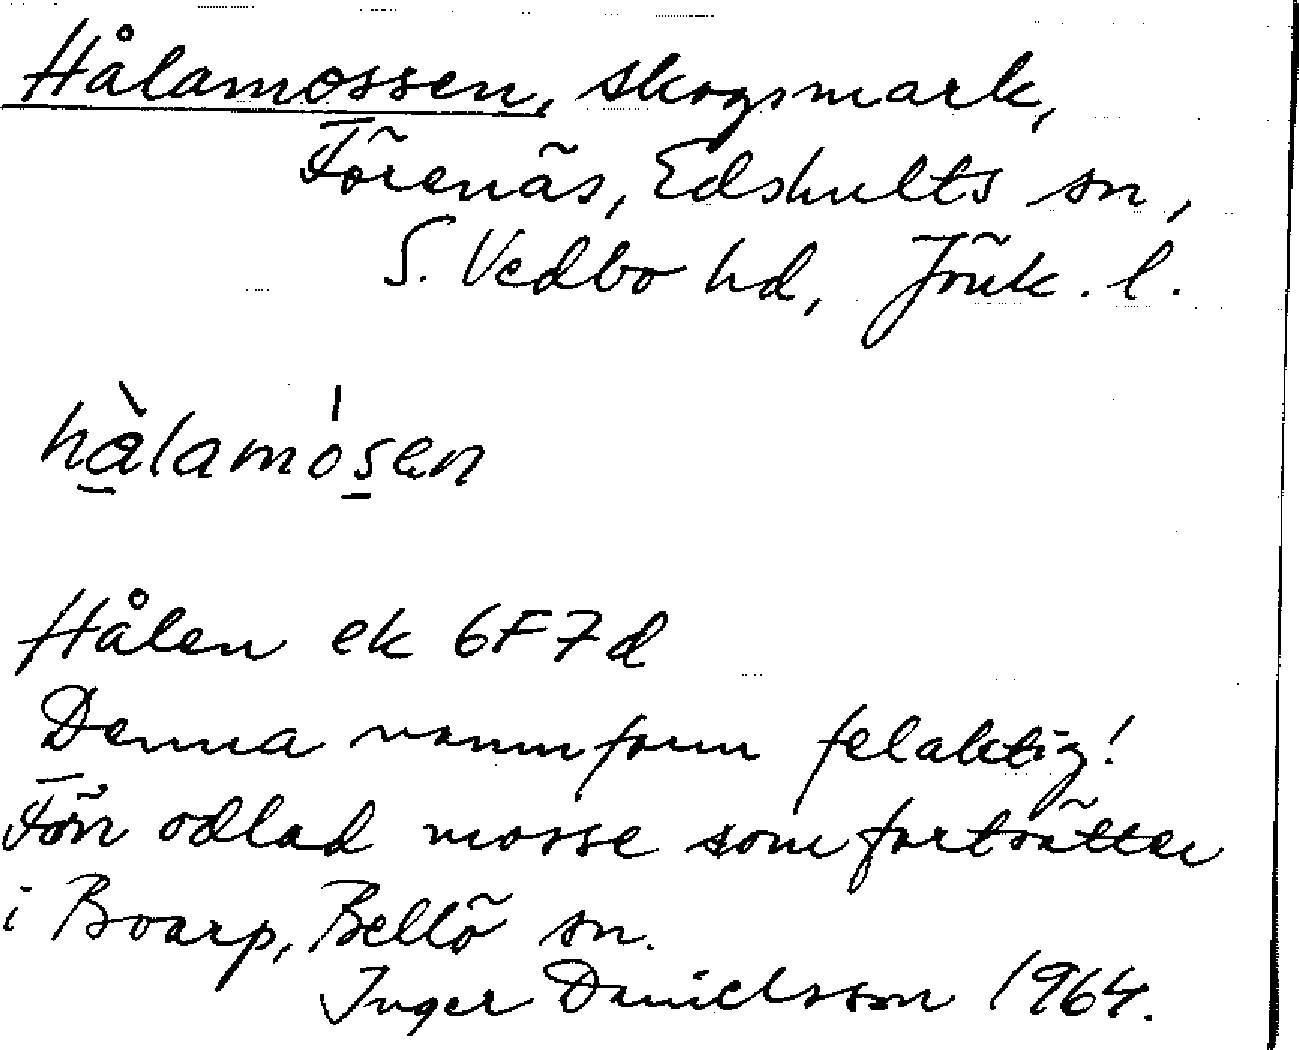 Hålamossen, skogsmark,
Förenäs, Edshults sn,
S. Vedbo hd, Jönk. l.
hå̀lamósen
Hålen ek 6F7d
Denna namnform felaktig!
Förr odlad mosse som fortsätter
i Boarp, Bellö sn.
Inger Danielsson 1964.